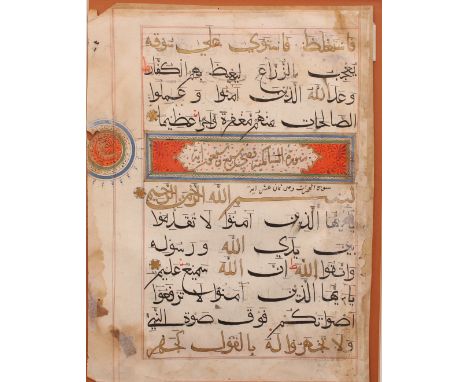 فاستغلظ فاستوى على سوقه
يعجب الزراع ليغيظ بهم الكفار
وعد الله الذين آمنوا وعملوا
الصالحات منهم مغفرة وأجرا عظيما
سورة
سورة الحجرات وهي ثمان عشر آية
بسم الله الرحمن الرحيم
يا أيها الذين آمنوا لا تقدموا
بين يدي الله ورسوله
واتقوا الله إن الله سميع عليم
يا أيها الذين آمنوا لا ترفعوا
أصواتكم فوق صوت النبي
ولا تجهروا له بالقول كجهر